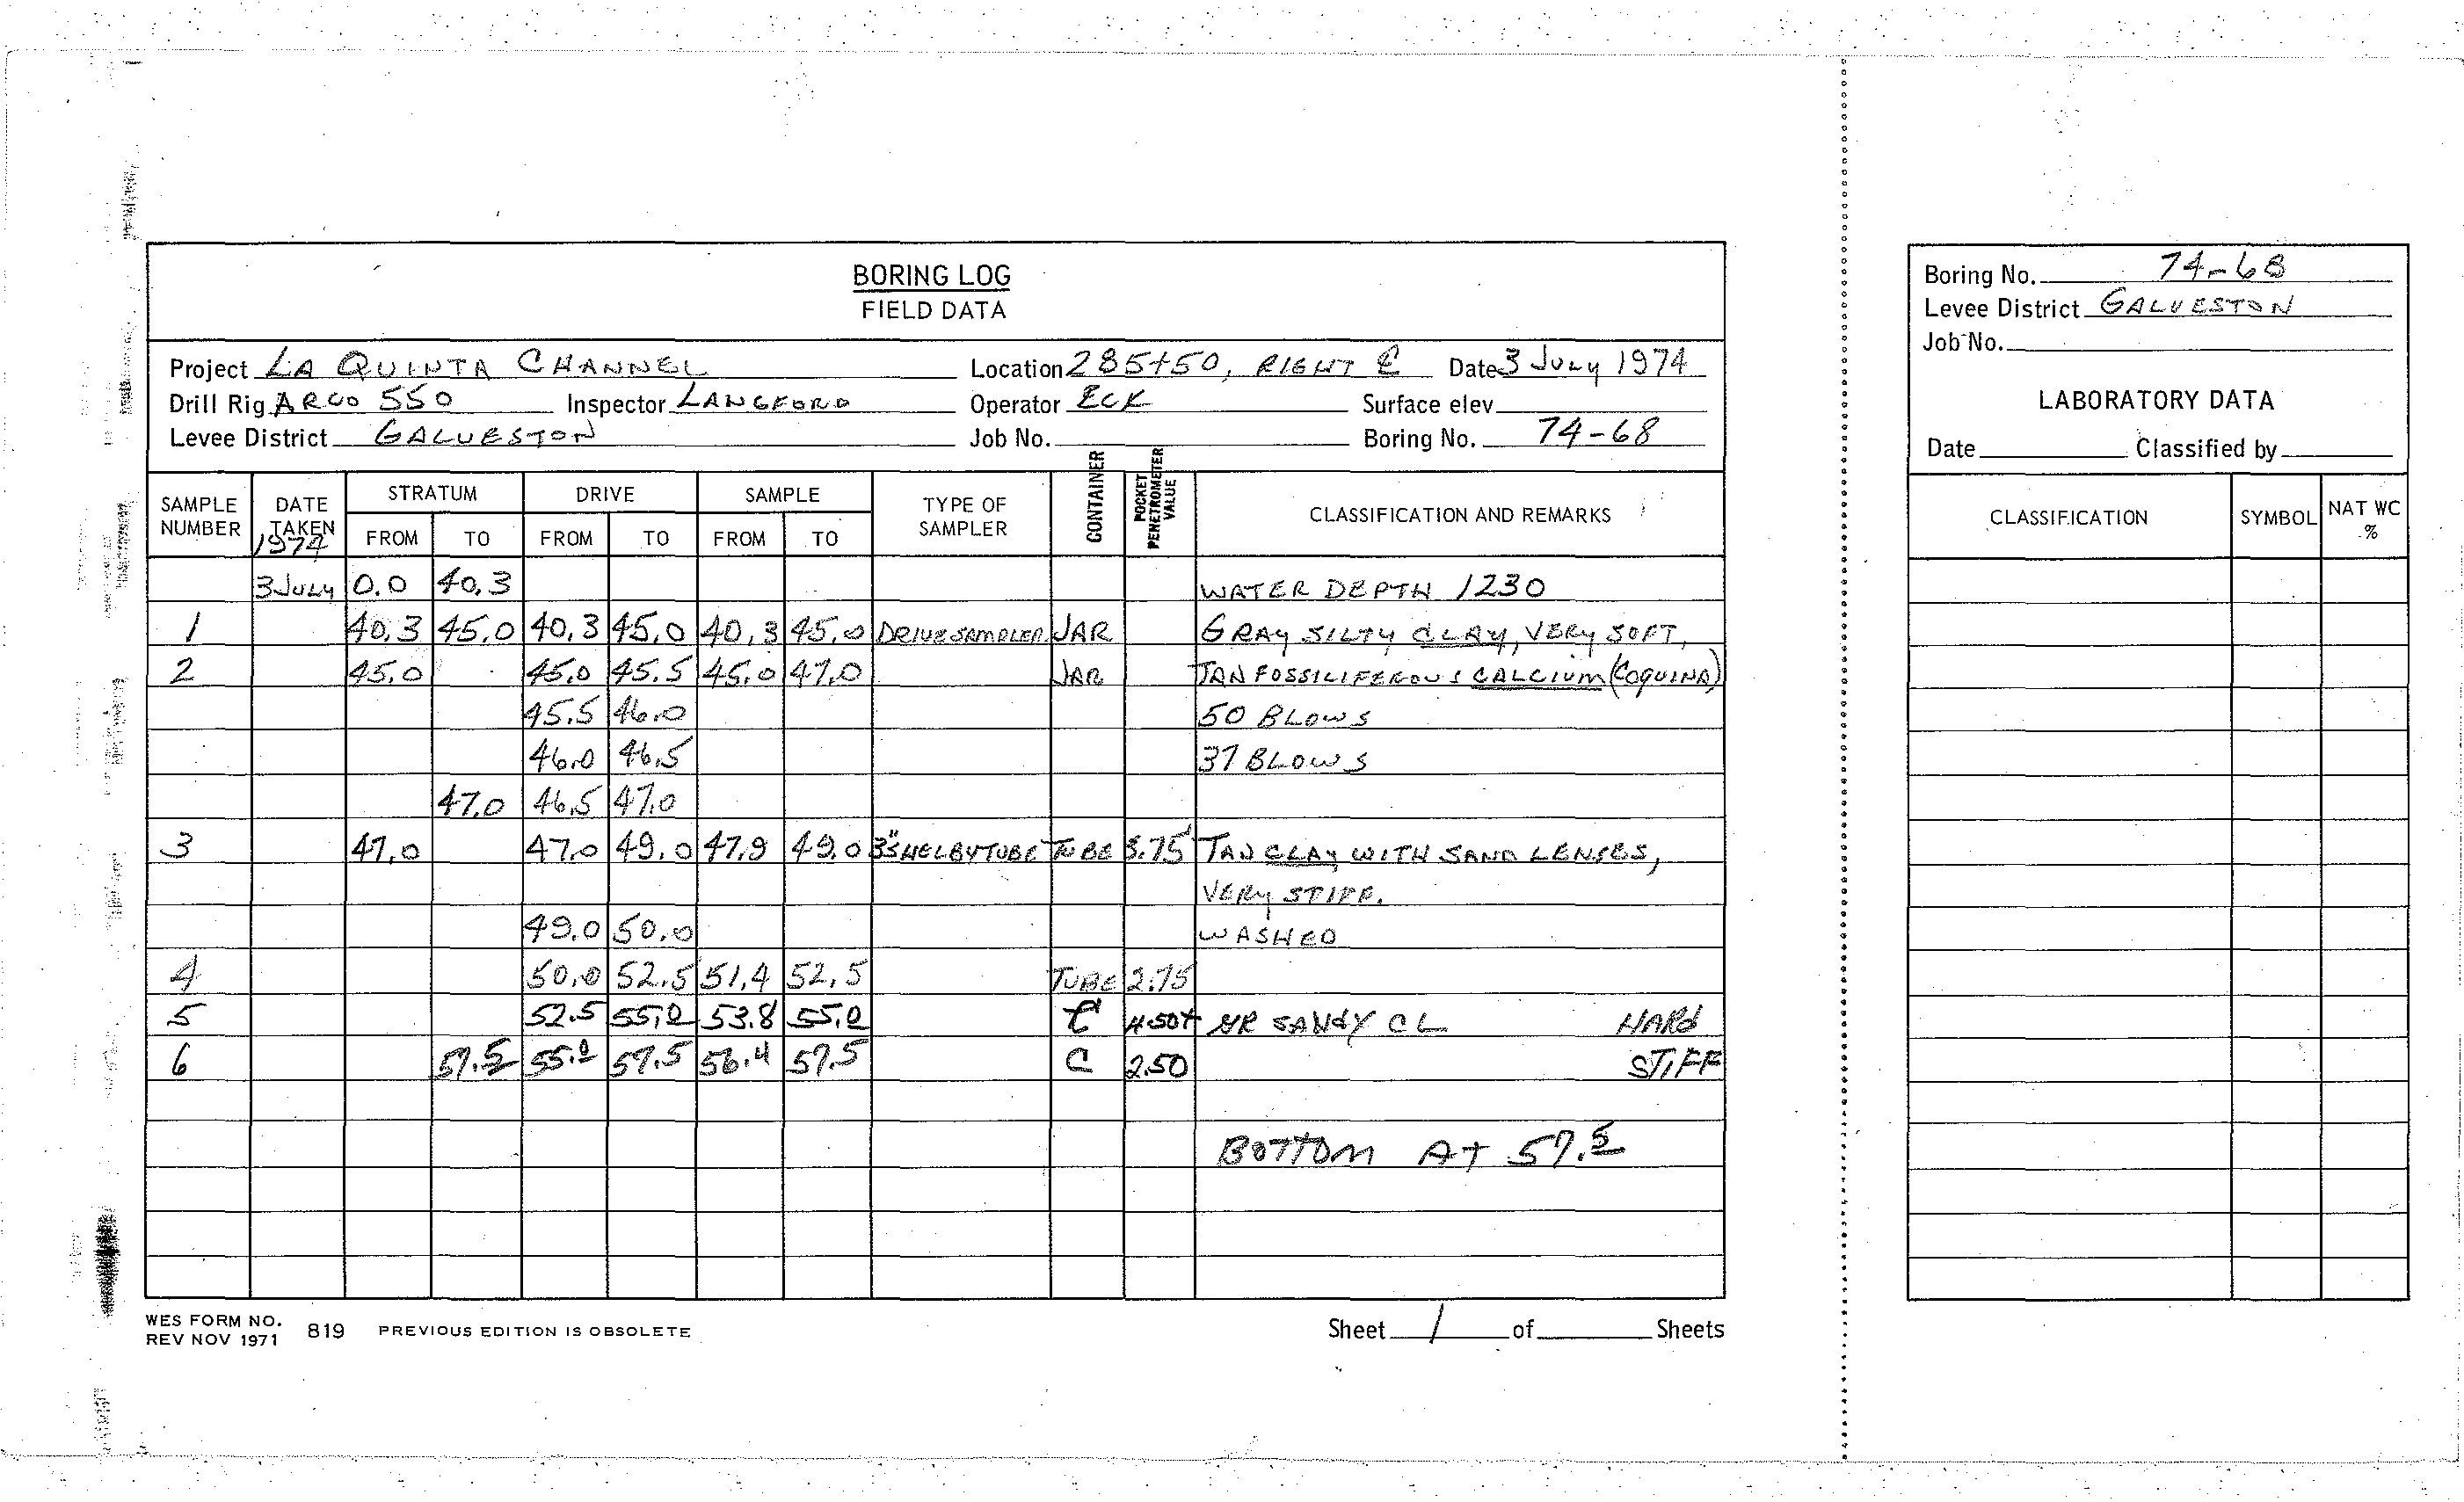 BORING LOG
FIELD DATA
Project LA QUINTA CHANNEL Location 285+50, RIGHT ℄ Date 3 JULY 1974
Drill Rig ARCO 550 Inspector LANGFORD Operator ECK Surface elev.
Levee District GALVESTON Job No. Boring No. 74-68
SAMPLE NUMBER DATE TAKEN 1974 STRATUM FROM TO DRIVE FROM TO SAMPLE FROM TO TYPE OF SAMPLER CONTAINER POCKET PENETROMETER VALUE CLASSIFICATION AND REMARKS
3 JULY 0.0 40.3 WATER DEPTH 1230
1 40.3 45.0 40.3 45.0 40.3 45.0 DRIVE SAMPLER JAR GRAY SILTY CLAY, VERY SOFT,
2 45.0 45.0 45.5 45.0 47.0 JAR TAN FOSSILIFEROUS CALCIUM (COQUINA)
45.5 46.0 50 BLOWS
46.0 46.5 37 BLOWS
47.0 46.5 47.0
3 47.0 47.0 49.0 47.9 49.0 3" SHELBY TUBE TUBE 3.75 TAN CLAY WITH SAND LENSES,
VERY STIFF.
49.0 50.0 WASHED
4 50.0 52.5 51.4 52.5 TUBE 2.75
5 52.5 55.0 53.8 55.0 4.50+ GR SANDY CL HARD
6 57.5 55.0 57.5 56.4 57.5 C 2.50 STIFF
BOTTOM AT 57.5
WES FORM NO. 819 PREVIOUS EDITION IS OBSOLETE
REV NOV 1971
Sheet 1 of Sheets
Boring No. 74-68
Levee District GALVESTON
Job No.
LABORATORY DATA
Date Classified by
CLASSIFICATION SYMBOL NAT WC %